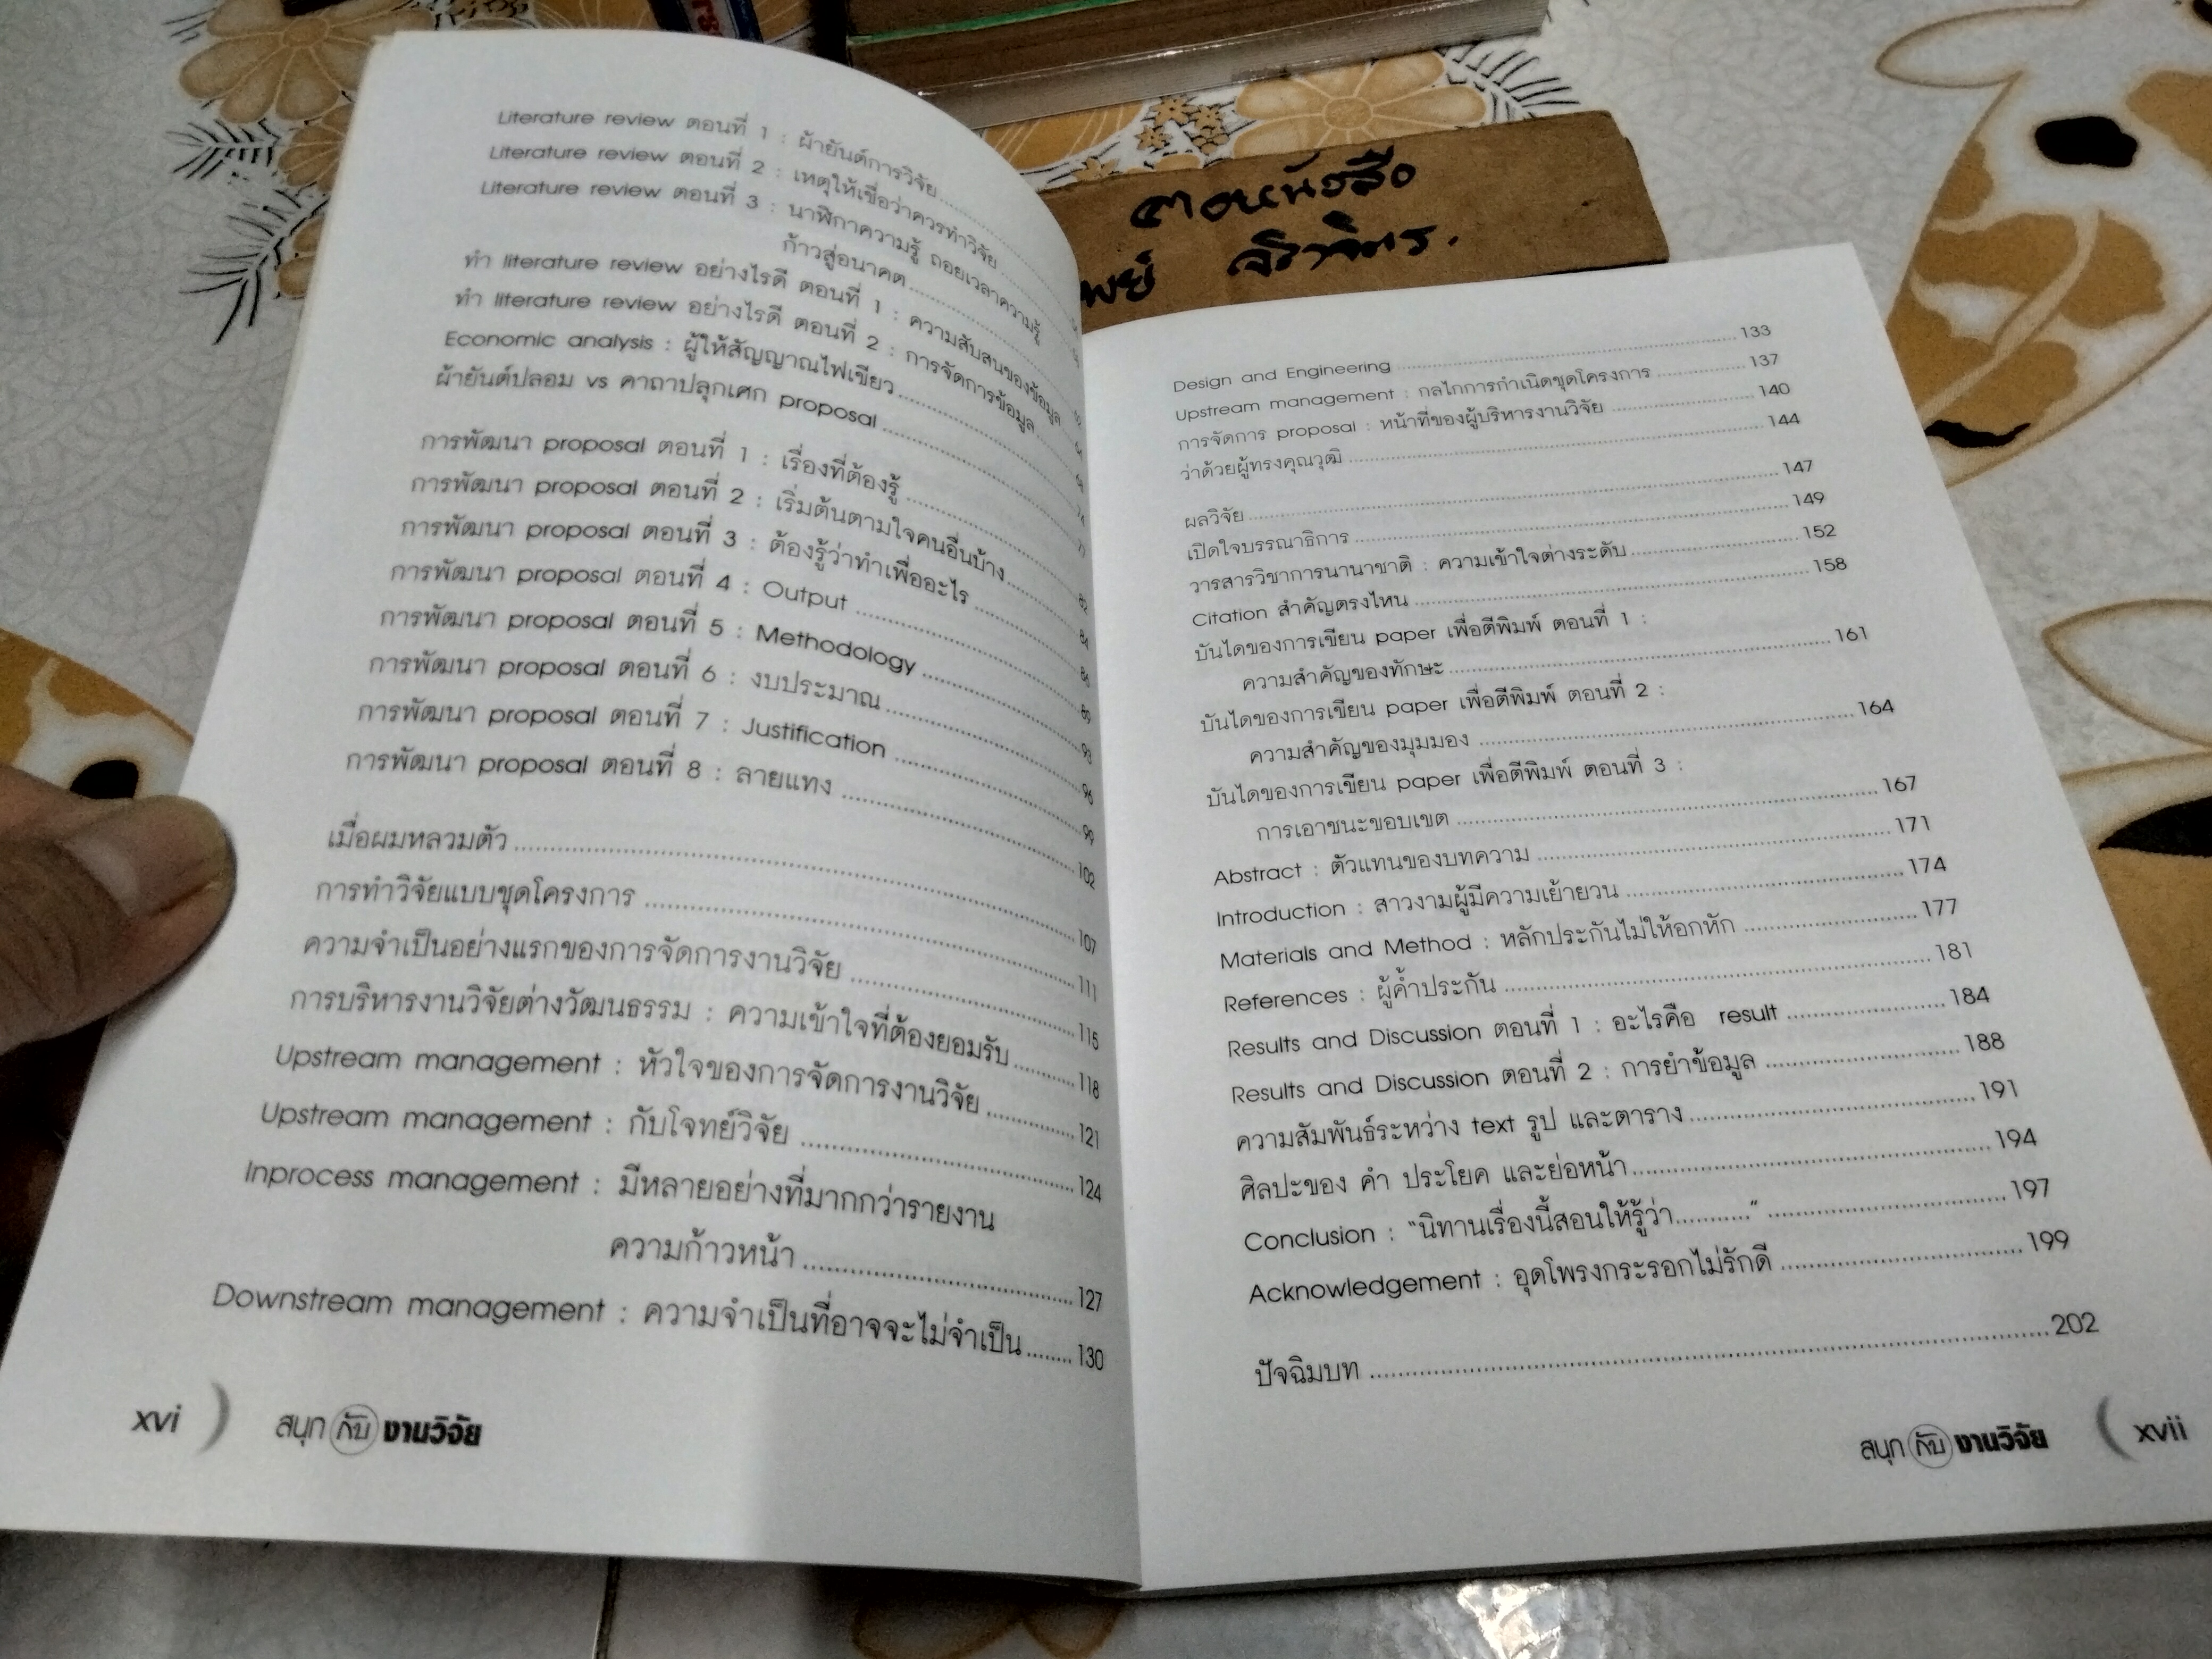 Literature review ตอนที่ 1 : ผ้ายันต์การวิจัย
Literature review ตอนที่ 2 : เหตุให้เชื่อว่าควรทำวิจัย
Literature review ตอนที่ 3 : นาฬิกาความรู้ ถอยเวลาความรู้
ก้าวสู่อนาคต
ทำ literature review อย่างไรดี ตอนที่ 1 : ความสับสนของข้อมูล
ทำ literature review อย่างไรดี ตอนที่ 2 : การจัดการข้อมูล
Economic analysis : ผู้ให้สัญญาณไฟเขียว
ผ้ายันต์ปลอม vs คาถาปลุกเศก proposal
การพัฒนา proposal ตอนที่ 1 : เรื่องที่ต้องรู้
การพัฒนา proposal ตอนที่ 2 : เริ่มต้นตามใจคนอื่นบ้าง
การพัฒนา proposal ตอนที่ 3 : ต้องรู้ว่าทำเพื่ออะไร
การพัฒนา proposal ตอนที่ 4 : Output
การพัฒนา proposal ตอนที่ 5 : Methodology
การพัฒนา proposal ตอนที่ 6 : งบประมาณ
การพัฒนา proposal ตอนที่ 7 : Justification
การพัฒนา proposal ตอนที่ 8 : ลายแทง
เมื่อผมหลวมตัว ........ 102
การทำวิจัยแบบชุดโครงการ ........ 107
ความจำเป็นอย่างแรกของการจัดการงานวิจัย ........ 111
การบริหารงานวิจัยต่างวัฒนธรรม : ความเข้าใจที่ต้องยอมรับ ........ 115
Upstream management : หัวใจของการจัดการงานวิจัย ........ 118
Upstream management : กับโจทย์วิจัย ........ 121
Inprocess management : มีหลายอย่างที่มากกว่ารายงาน ........ 124
ความก้าวหน้า ........ 127
Downstream management : ความจำเป็นที่อาจจะไม่จำเป็น ........ 130
xvi ) สนุก กับ งานวิจัย
Design and Engineering ........ 133
Upstream management : กลไกการกำเนิดชุดโครงการ ........ 137
การจัดการ proposal : หน้าที่ของผู้บริหารงานวิจัย ........ 140
ว่าด้วยผู้ทรงคุณวุฒิ ........ 144
ผลวิจัย ........ 147
เปิดใจบรรณาธิการ ........ 149
วารสารวิชาการนานาชาติ : ความเข้าใจต่างระดับ ........ 152
Citation สำคัญตรงไหน ........ 158
บันไดของการเขียน paper เพื่อตีพิมพ์ ตอนที่ 1 :
ความสำคัญของทักษะ ........ 161
บันไดของการเขียน paper เพื่อตีพิมพ์ ตอนที่ 2 :
ความสำคัญของมุมมอง ........ 164
บันไดของการเขียน paper เพื่อตีพิมพ์ ตอนที่ 3 :
การเอาชนะขอบเขต ........ 167
Abstract : ตัวแทนของบทความ ........ 171
Introduction : สาวงามผู้มีความเย้ายวน ........ 174
Materials and Method : หลักประกันไม่ให้อกหัก ........ 177
References : ผู้ค้ำประกัน ........ 181
Results and Discussion ตอนที่ 1 : อะไรคือ result ........ 184
Results and Discussion ตอนที่ 2 : การยำข้อมูล ........ 188
ความสัมพันธ์ระหว่าง text รูป และตาราง ........ 191
ศิลปะของ คำ ประโยค และย่อหน้า ........ 194
Conclusion : "นิทานเรื่องนี้สอนให้รู้ว่า..........." ........ 197
Acknowledgement : อุดโพรงกระรอกไม่รักดี ........ 199
ปัจฉิมบท ........ 202
สนุก กับ งานวิจัย ( xvii